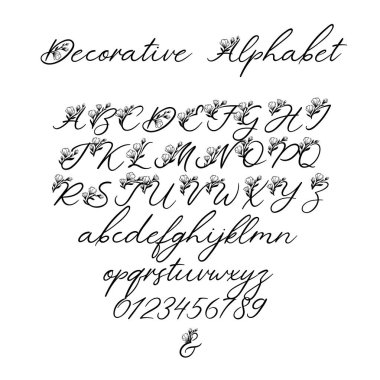 Decorative Alphabet
ABCDEFGHI
JKLMNOPQ
RSTUVWXYZ
abcdefghijklmn
opqrstuvwxyz
0123456789
&